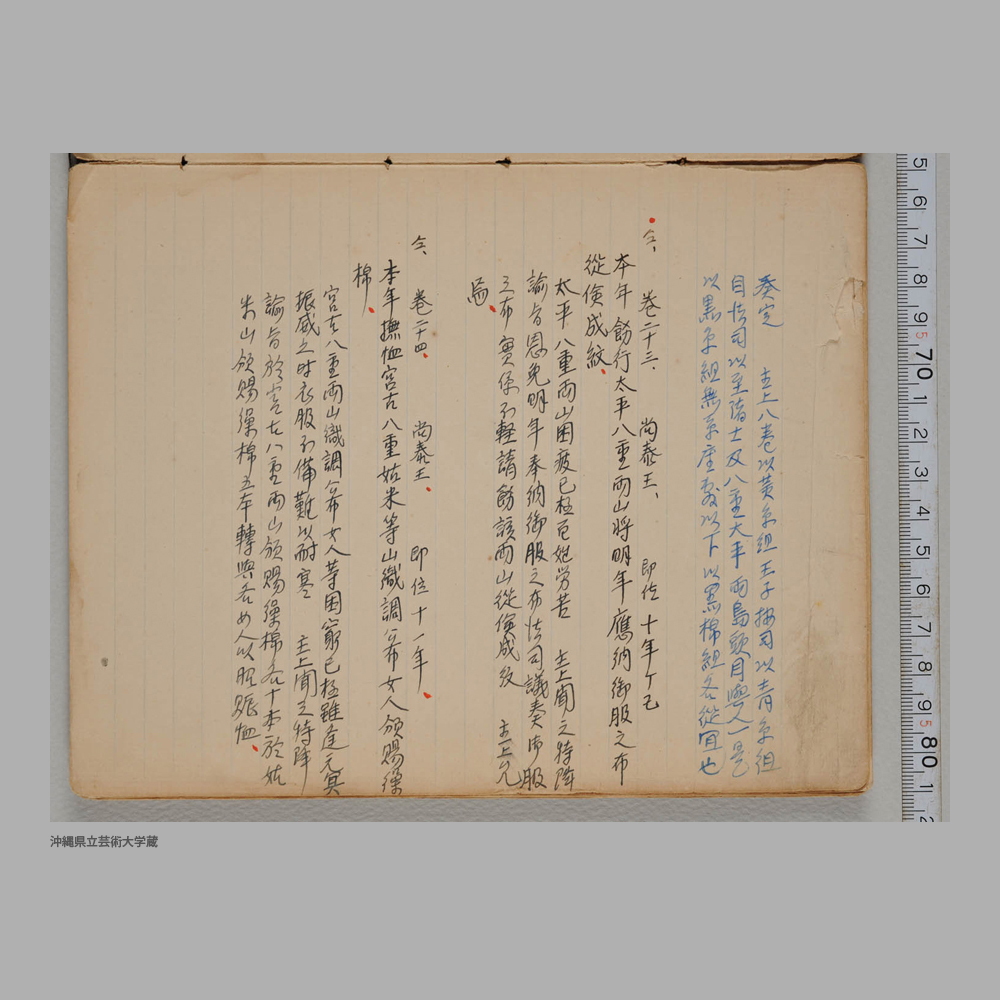 癸定　主上八巻以黄糸組王子按司以青糸組
自法司以至諸士及八重太平両島頭目與人一是
以黒糸組無糸座敷以下以黒棉組各從冝也
仝、　巻二十三、　尚泰王、　即位十年丁巳
本年飭行太平八重両山将明年應納御服之布
從儉成紋、
太平八重両山困疲已極百姓労苦　主上聞之特降
諭旨恩免明年奉納御服之布法司議奏御服
之布實係不軽請飭該両山從儉成紋　主上允
焉、
仝、　巻二十四、　尚泰王、　即位十一年、
本年撫恤宮古八重姑米等山織調貢布女人頒賜繰
棉、
宮古八重両山織調貢布女人等困窮已極雖逢元冥
振威之時衣服不備難以耐寒　主上聞之特降
諭旨於宮古八重両山頒賜繰棉各十本於姑
米山頒賜繰棉五本轉與各女人以昭賑恤、
5 6 7 8 9 70 1 2 3 4 5 6 7 8 9 80 1 2
沖縄県立芸術大学蔵